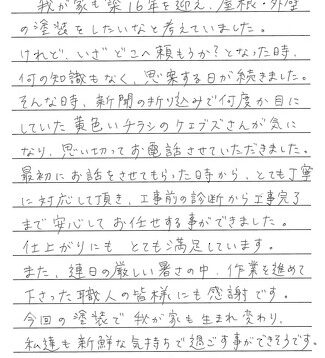 我が家も築16年を迎え、屋根・外壁
の塗装をしたいなと考えていました。
けれど、いざどこへ頼もうか?となった時、
何の知識もなく、思案する日が続きました。
そんな時、新聞の折り込みで何度か目に
していた黄色いチラシのケエブズさんが気に
なり、思い切ってお電話させていただきました。
最初にお話をさせてもらった時から、とても丁寧
に対応して頂き、工事前の診断から工事完了
まで安心してお任せする事ができました。
仕上がりにも とても満足しています。
また、連日の厳しい暑さの中、作業を進めて
下さった職人の皆様にも感謝です。
今回の塗装で我が家も生まれ変わり、
私達も新鮮な気持ちで過ごす事ができそうです。